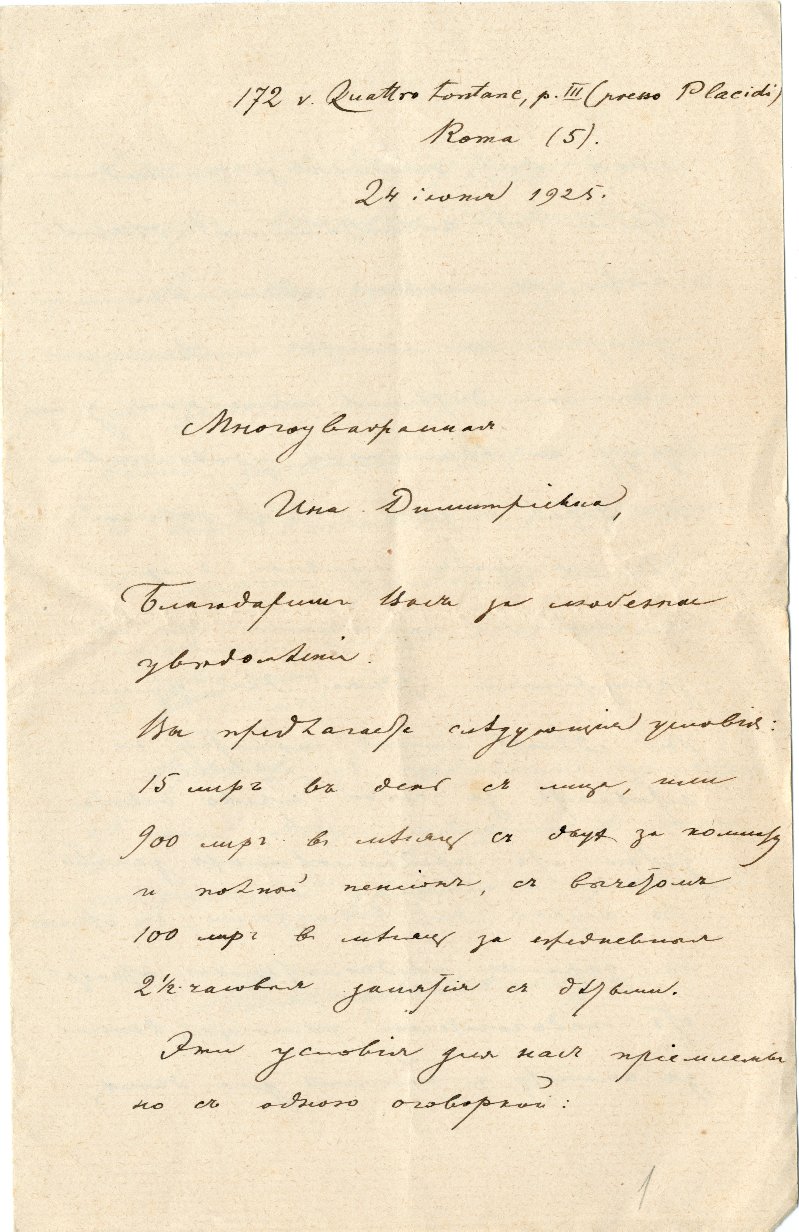 172 v. Quattro Fontane, p. III (presso Placidi)
Roma (5).
24 іюня 1925.
Многоуважаемая
Ина Димитріевна,
Благодаримъ Васъ за любезное
увѣдомленіе.
Вы предлагаете слѣдующія условія:
15 лиръ въ день съ лица, или
900 лиръ въ мѣсяцъ съ двухъ за комнату
и полной пенсіонъ, съ вычетомъ
100 лиръ въ мѣсяцъ за ежедневныя
2½ часовыя занятія съ дѣтьми.
Эти условія для насъ пріемлемы
но съ одною оговоркой:
1